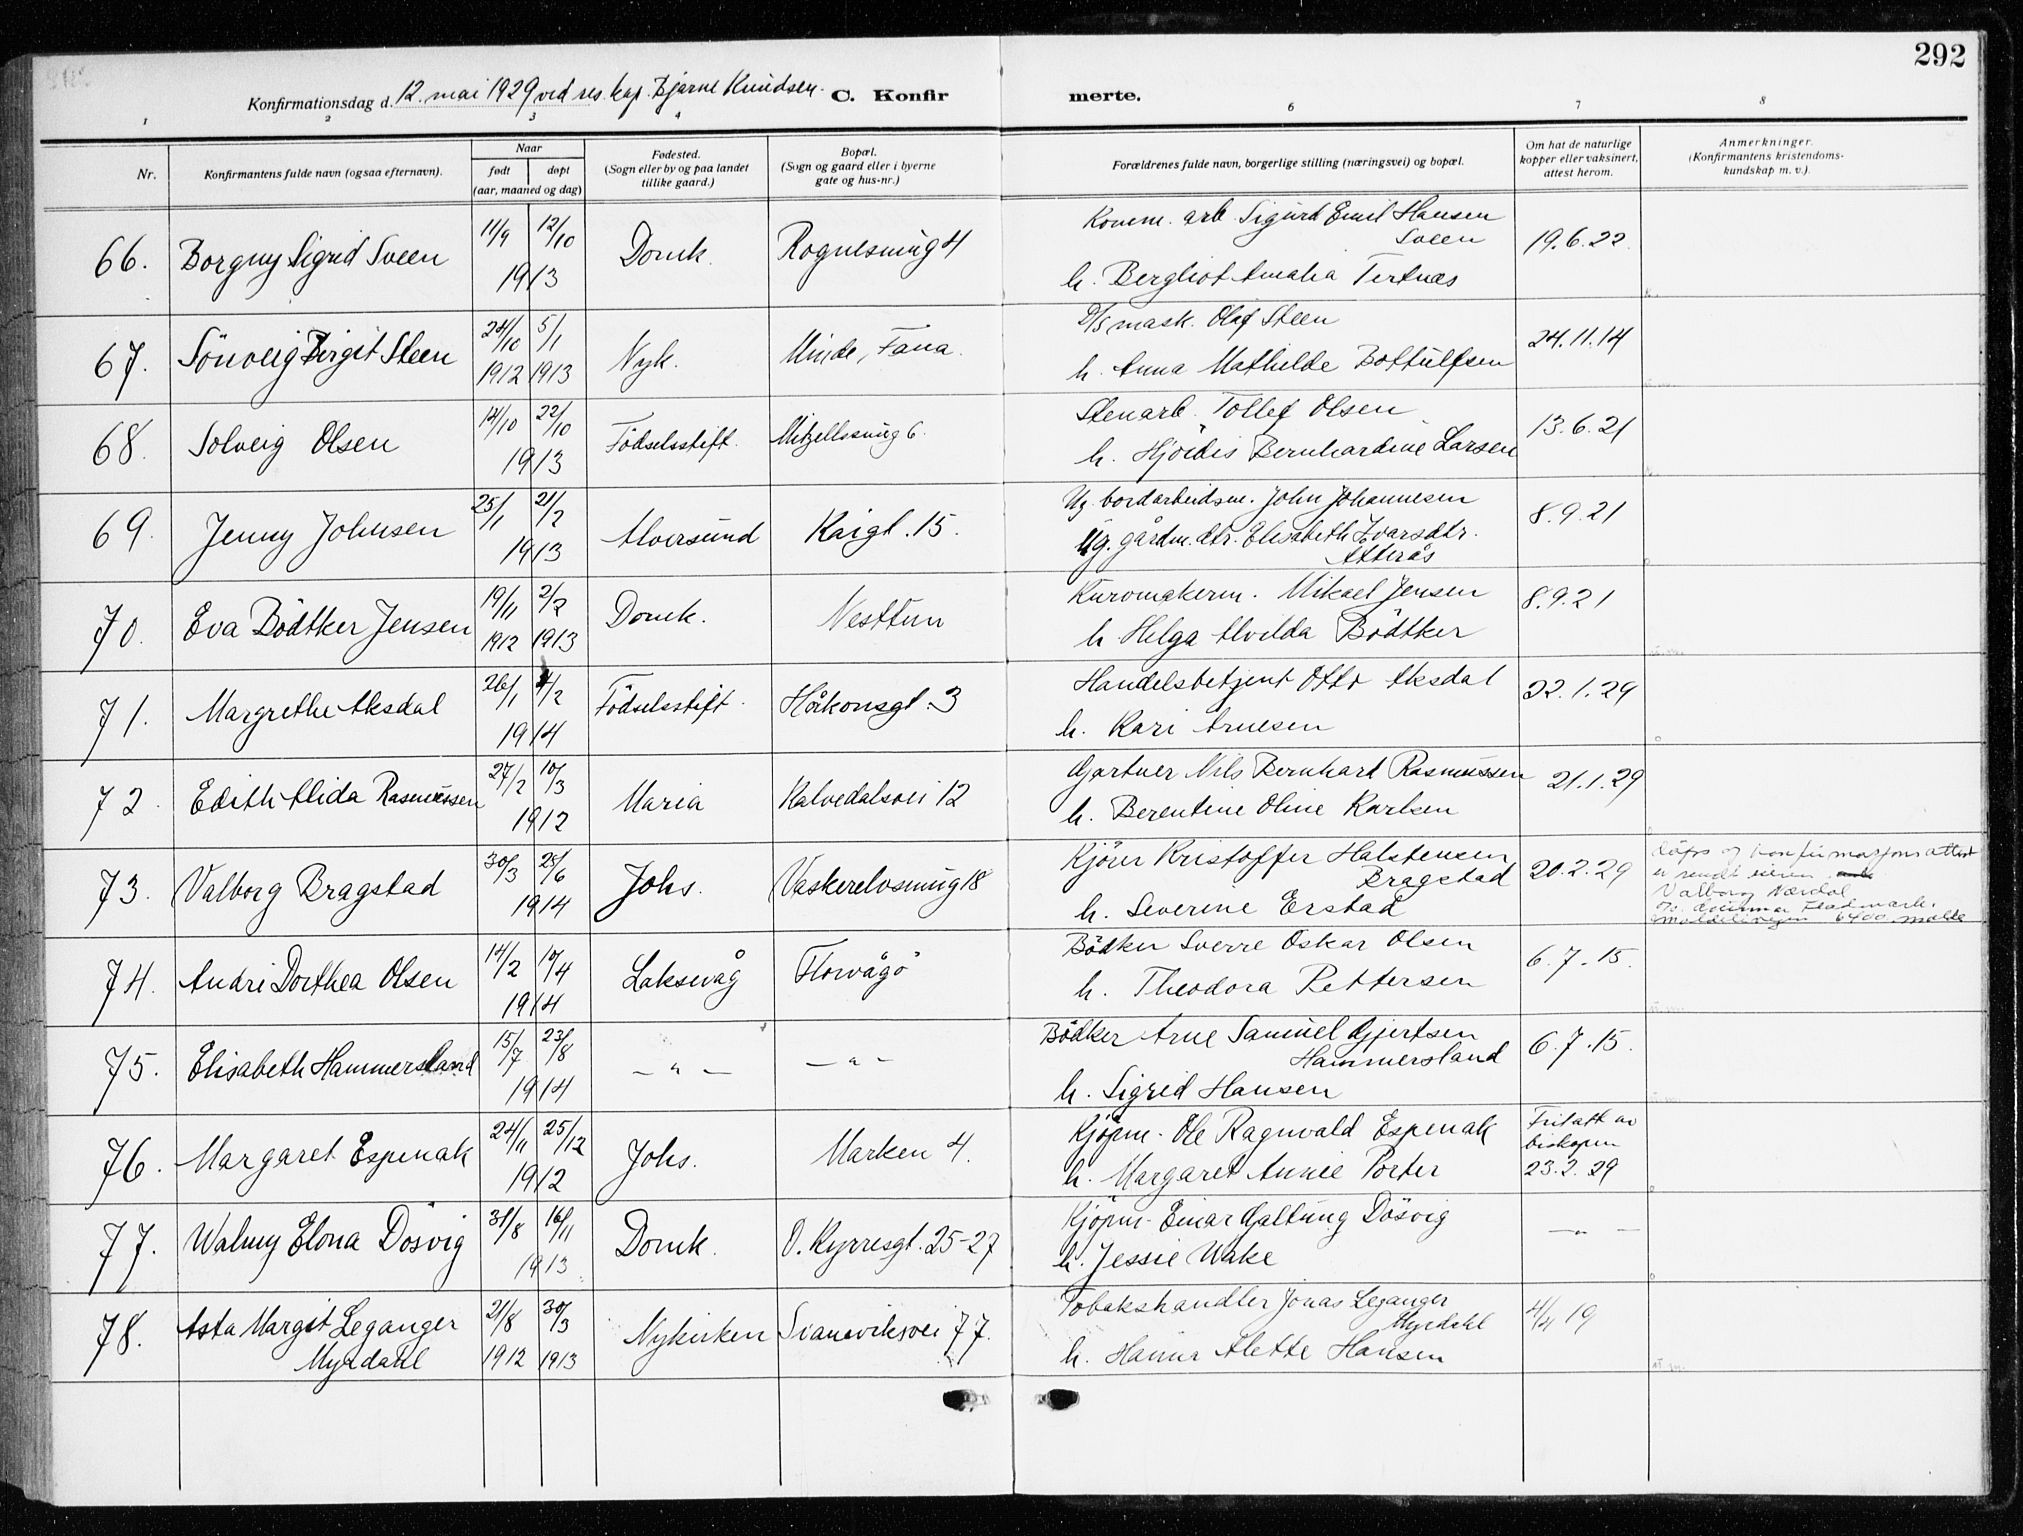 292
Konfirmationsdag d. 12. mai 1929 ved res. kap. Bjarne Knudsen. C. Konfir merte.
1 2 3 4 6 7 8
Nr.
Konfirmantens fulde navn (ogsaa efternavn).
Naar
født døpt
(aar, maaned og dag)
Fødested.
(Sogn eller by og paa landet
tillike gaard.)
Bopæl.
(Sogn og gaard eller i byerne
gate og hus-nr.)
Forældrenes fulde navn, borgerlige stilling (næringsvei) og bopæl.
Om hat de naturlige
kopper eller vaksinert,
attest herom.
Anmerkninger.
(Konfirmantens kristendoms-
kundskap m. v.).
66. Borgny Sigrid Sveen 11/9 12/10 1913 Domk. Rognesmug 4 Komm. arb. Sigurd Emil Hansen
Sveen 19.6.22.
h. Bergliot Amalia Tertnæs
67. Sönveig Birgit Steen 24/10 1912 5/1 1913 Nyk. Minde, Fana. D/S mask. Olaf Steen 24.11.14
h. Anna Mathilde Bottulfsen
68. Solveig Olsen 14/10 22/10 1913 Födselsstift. Mitzellsmug 6. Stenarb. Tollef Olsen 13.6.21
h. Hjördis Bernhardine Larsen
69. Jenny Johnsen 25/1 21/2 1913 Alversund Kaigt. 15. Ug. bordarbeidsm. John Johannesen 8.9.21
Ug. gårdm. dtr. Elisabeth Ivarsdtr.
Atterås
70. Eva Bödtker Jensen 19/11 1912 2/2 1913 Domk. Nesttun Kurvmakerm. Mikael Jensen 8.9.21
h. Helga Alvilda Bödtker
71. Margrethe Aksdal 26/1 4/2 1914 Födselsstift. Håkonsgt. 3 Handelsbetjent Otto Aksdal 22.1.29
h. Kari Arnesen
72. Edith Alida Rasmussen 27/2 10/3 1912 Maria Kalvedalsvei 12 Gartner Nils Bernhard Rasmussen 21.1.29
h. Berentine Oline Karlsen
73. Valborg Bragstad 30/3 25/6 1914 Johs. Vaskerelvsmug 18 Kjörer Kristoffer Halstensen
Bragstad 20.2.29
h. Severine Erstad
Dåps og konfirmasjonsattest
er sendt
Valborg Nerdal
6400 Molde
74. Andri Dorthea Olsen 14/2 10/4 1914 Laksevåg Florvågö Bödker Sverre Oskar Olsen 6.7.15.
h. Theodora Pettersen
75. Elisabeth Hammersland 15/7 23/8 1914 — " — — " — Bödker Arne Samuel Gjertsen
Hammersland 6.7.15.
h. Sigrid Hansen
76. Margaret Espenak 24/11 25/12 1912 Johs. Marken 4. Kjöpm. Ole Ragnvald Espenak
h. Margaret Annie Porter
Fritatt av
biskopen
23.2.29
77. Walmy Elona Dösvig 31/8 16/11 1913 Domk. O. Kyrresgt. 25-27 Kjöpm. Einar Galtung Dösvig — " —
h. Jessie Wake
78. Asta Margit Leganger
Myrdahl 21/8 1912 30/3 1913 Nykirken Svaneviksvei 77. Tobakshandler Jonas Leganger
Myrdahl 4/4 19
h. Hanna Alette Hansen